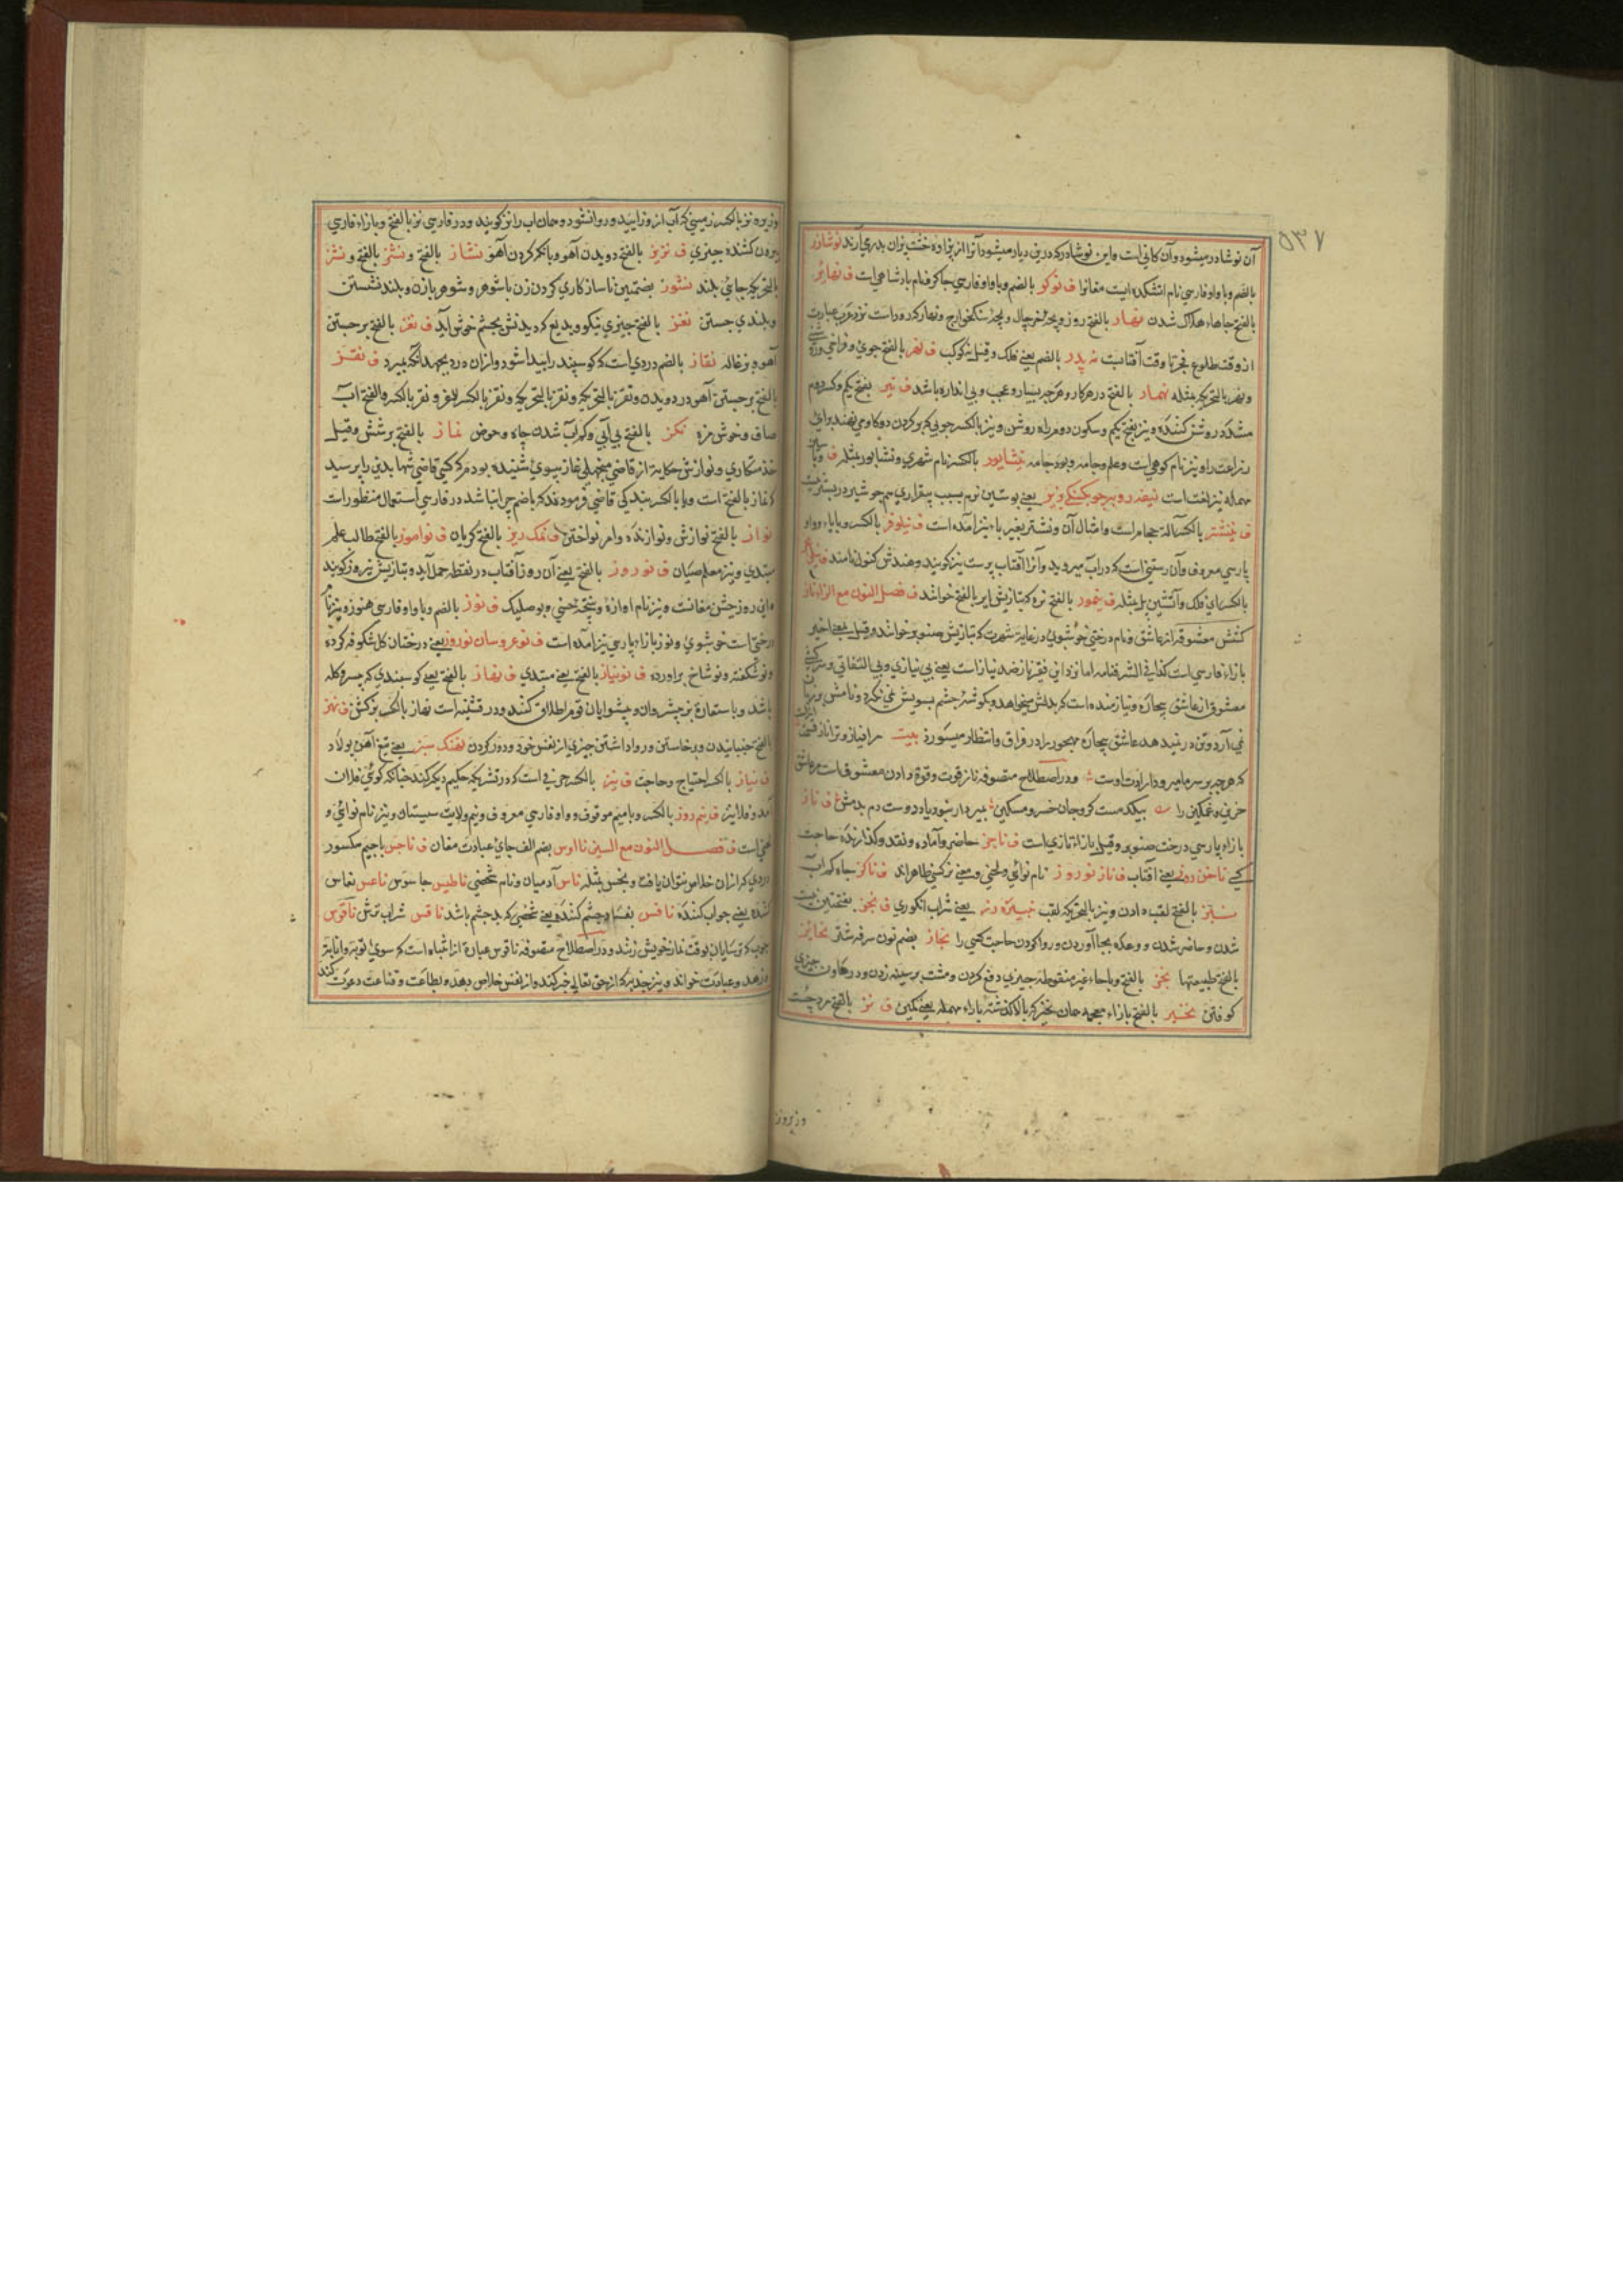 ۵۳۷
آن نوشادر میشود و آن کانی است و این نوشادر که درین دیار میشود آنرا از پزاوه خشت پزان بدر می آرند نوشازر
بالضم و با واو فارسی نام آتشکده ایست مغانرا ف نوکو بالضم و با واو فارسی چاکر و نام پادشاهی است ف نهابر
بالفتح جاهاء هلاک شدن نهار بالفتح روز و بچۀ و بچۀ سنکخوار و نهار که روز است نزد عرب عبارت
از وقت طلوع فجر تا وقت آفتابست نه پدر بالضم یعنی فلک و قیل نه کوکب ف نهر بالفتح جوی و فراخی
و نهر بالتحریک مثله نهمار بالفتح در هر کار و هر چه بسیار و عجب و بی اندازه باشد ف نیر بفتح یکم و کسر دوم
مشدد روشن کننده و نیز بفتح یکم و سکون دوم راه روشن و نیز بالکسر چوبی که بر کردن دو کاو می نهند برای
زراعت را و نیز نام کوهی است و علم جامه و پود جامه نیشاپور بالکسر نام شهری و نشاپور مثله ف
مهمله نیز لغت است یعنی پوستین نرم بسبب بیقراری
ف نیشتر بالکسر آلۀ حجام است و امثال آن و نشتر بغیر یاء نیز آمده است ف نیلوفر بالکسر و بایاء و واو
پارسی معروف و آن رستنی است که در آب میروید و آنرا آفتاب پرست نیز کویند و هندش کنول نامند
بالکسر ای فلک و آتشین مثله ف بالفتح نره که بتازیش ایر بالفتح خوانند ف فصل النون مع الزاء ناز
کشش معشوقه از عاشق و نام درختی خوشبوی در غایة شهرت که بتازیش صنوبر خوانند و قیل بمعنی اخیر
بازاء فارسی است کذا فی الشرفنامه اما نزد این فقیر ناز ضد نیاز است یعنی بی نیازی و بی التفاتی و سرکشی
معشوق از عاشق بیچاره و نیازمنده است که بدلش میخواهد و بکوشۀ چشم بسویش نمی نکرد و نامش بر زبان
نمی آرد و تن در نمیدهد عاشق بیچاره مهجور را در فراق و انتظار میسوزد بیت مرا نیاز و ترا ناز
که هر چه بر سر ما میرود ارادت اوست و در اصطلاح متصوفه ناز قوت و قوة دادن معشوق است مر عاشق
حزین و غمکین را
بازاء پارسی درخت صنوبر و قیل بازاء تازی است ف ناجز حاضر و آماده و نقد و کذارنده حاجت
کسی ناخن روز یعنی آفتاب ف ناز نوروز نام نوائی و لحنی و معنی ترکیبی ظاهر اند ف ناکز چاه کم آب
نبز بالفتح لقب دادن و نیز بالتحریک لقب یعنی شراب انکوری ف نجز بفتحتین
شدن و حاضر شدن و وعده بجا آوردن و روا کردن حاجت کسی را نحاز بضم نون سرفه شتر نحایز
بالفتح طبیعتها نحز بالفتح و باحاء غیر منقوطه چیزی دفع کردن و مشت بر سینه زدن و در هاون چیزی
کوفتن نخیز بالفتح بازاء معجمه همان نخیر که بالا کذشته باراء مهمله یعنی کمین ف نز بالفتح مرد چست
وزیروز
و زیره نز بالکسر زمینی که آب ازو زاید و روانشود و همان آب را نز کویند و در فارسی نز بالفتح و بازاء فارسی
بیرون کشنده چیزی ف نزیز بالفتح دویدن آهو و بانک کردن آهو نشاز بالفتح و نشز بالفتح و نشز
بالتحریک جائی بلند نشوز بضمتین ناسازکاری کردن زن با شوهر و شوهر بازن و بلند نشستن
و بلندی جستن نغز بالفتح چیزی نیکو و بدیع که دیدنش بچشم خوش آید ف نفز بالفتح برجستن
آهو و بزغاله نقاز بالضم دردی است که کوسپند را پیدا شود و ازان درد بجهد تا آنکه بمیرد ف نقز
بالفتح برجستن آهو در دویدن و نقز بالتحریک و نقز بالتحریک و نقز بالکسر و نقز بالکسر و بالفتح آب
صاف و خوش مزه نکز بالفتح بی آبی و کم آب شدن چاه و حوض نماز بالفتح پرستش و قیل
خدمتکاری و نوازش حکایة از قاضی نماز بسوی شنیده بودم که کسی قاضی شهاب الدین را پرسید
که نماز بالفتح است و یا بالکسر بندکی قاضی فرمودند که باضم چرا نباشد در فارسی استعمال منظور است
نواز بالفتح نوازش و نوازنده و امر نواختن ف نمک ریز بالفتح کریان ف نواموز بالفتح طالب علم
مبتدی و نیز معلم صبیان ف نوروز بالفتح یعنی آن روز آفتاب در نقطه حمل آید و بتازیش نیروز کویند
و این روز جشن مغانست و نیز نام آوازۀ و شعبۀ حسینی و بوسلیک ف نوز بالضم و با واو فارسی هنوز و نیز نام
درختی است خوشبوی و نوژ بازاء پارسی نیز آمده است ف نوعروسان نوروز یعنی درختان کل شکوفه کرده
و نو شکفته و نو شاخ برآورده ف نونیاز بالفتح یعنی مبتدی ف نهاز بالفتح یعنی کوسفندی که پیشرو کله
باشد و باستعارة بر پیشروان و پیشوایان قوم اطلاق کنند و در قنیه است نهاز بالکسر ف نهز
بالفتح جنبانیدن و برخاستن و روا داشتن چیزی از نفس خود و دور کردن نهنک سبز یعنی تیغ آهن پولاد
ف نیاز بالکسر احتیاج و حاجت ف نیز بالکسر حرفی است که در تشریک حکم دیکر کنند چنانکه کوئی فلان
آمد و فلان نیز ف نیم روز بالکسر و بامیم موقوف و واو فارسی معروف و نیم ولایت سیستان و نیز نام نوائی و
لحنی است ف فصل النون مع السین نااوس بضم الف جای عبادت مغان ف ناجس باجیم مکسور
دردی که ازان خلاص نتوان یافت و نجس مثله ناس آدمیان و نام شخصی ناطیس جاسوس ناعس نعاس
کننده یعنی خواب کننده نافس یعنی شخصی که بدچشم باشد ناقس شراب ترش ناقوس
چوب که ترسایان بوقت نماز خویش زنند و در اصطلاح متصوفه ناقوس عبارة از انتباه است که سوی توبه و انابة
و زهد و عبادت خواند و نیز جذبه که از حق تعالی خبر کند و از نفس خلاص دهد و بطاعت و قناعت دعوت کند